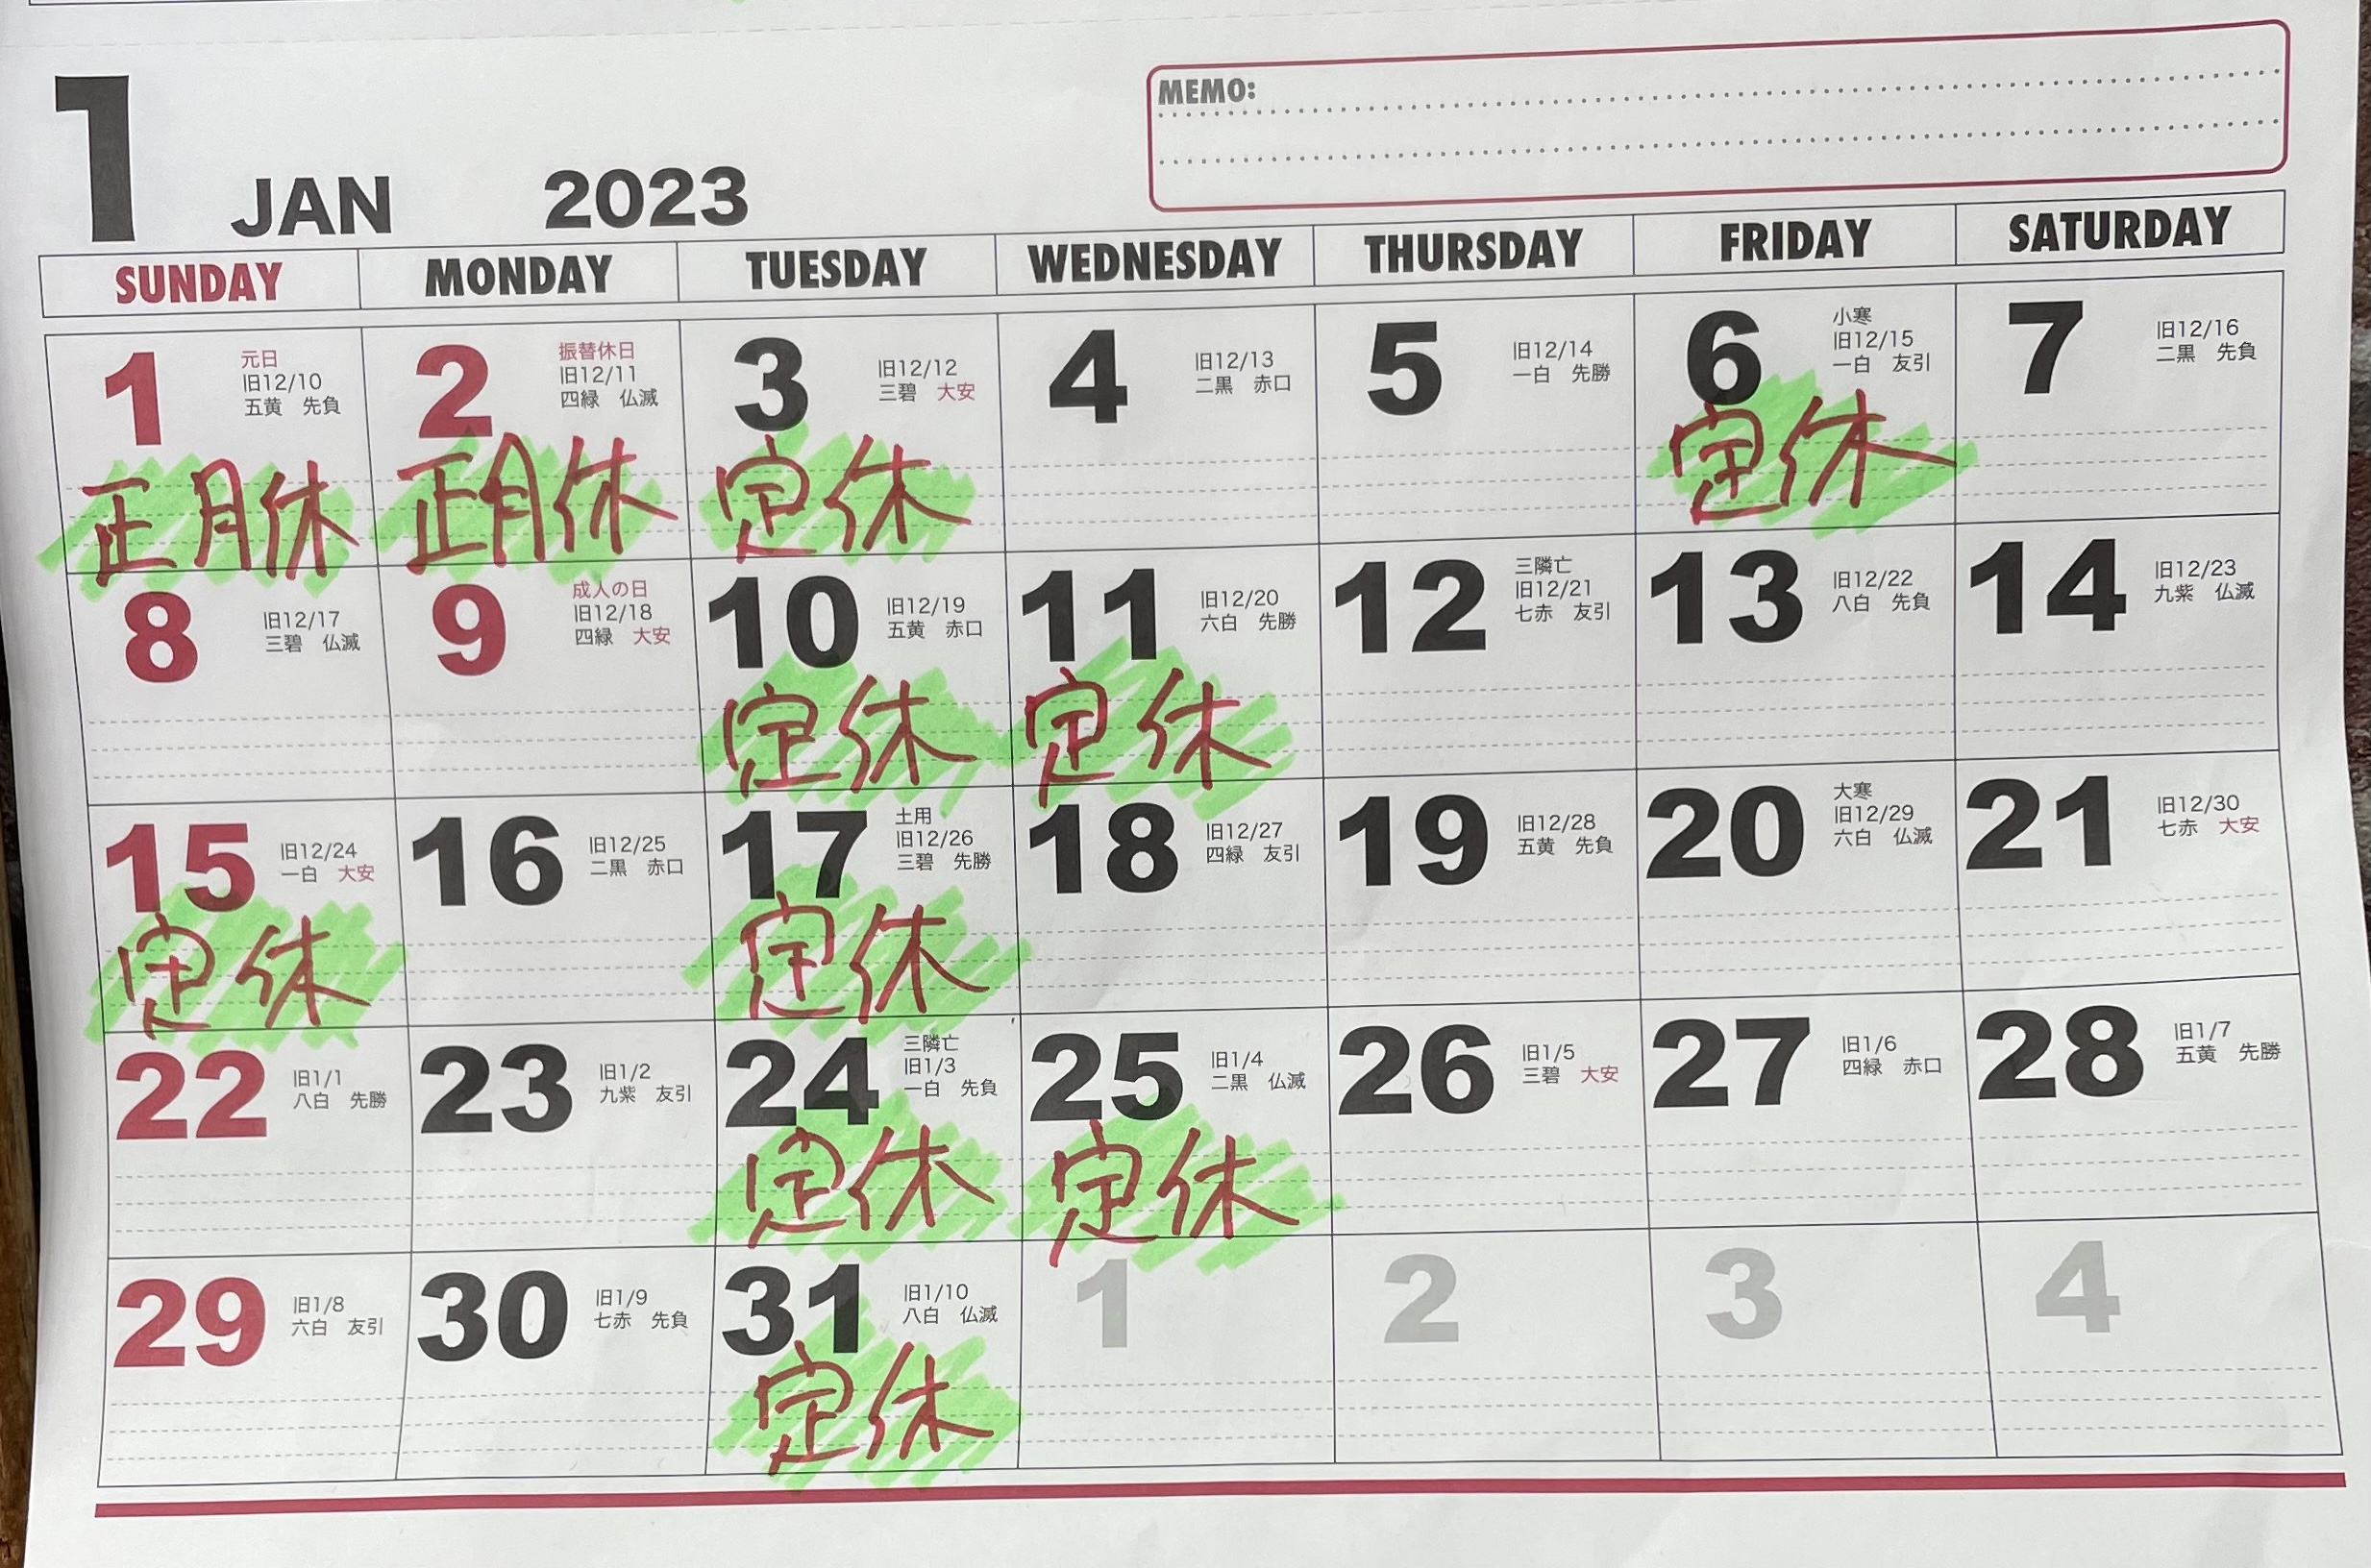 1 JAN 2023
MEMO:
SUNDAY MONDAY TUESDAY WEDNESDAY THURSDAY FRIDAY SATURDAY
1 元日 旧12/10 五黄 先負 正月休
2 振替休日 旧12/11 四緑 仏滅 正月休
3 旧12/12 三碧 大安 定休
4 旧12/13 二黒 赤口
5 旧12/14 一白 先勝
6 小寒 旧12/15 一白 友引 定休
7 旧12/16 二黒 先負
8 旧12/17 三碧 仏滅
9 成人の日 旧12/18 四緑 大安
10 旧12/19 五黄 赤口 定休
11 旧12/20 六白 先勝 定休
12 三隣亡 旧12/21 七赤 友引
13 旧12/22 八白 先負
14 旧12/23 九紫 仏滅
15 旧12/24 一白 大安 定休
16 旧12/25 二黒 赤口
17 土用 旧12/26 三碧 先勝 定休
18 旧12/27 四緑 友引
19 旧12/28 五黄 先負
20 大寒 旧12/29 六白 仏滅
21 旧12/30 七赤 大安
22 旧1/1 八白 先勝
23 旧1/2 九紫 友引
24 三隣亡 旧1/3 一白 先負 定休
25 旧1/4 二黒 仏滅 定休
26 旧1/5 三碧 大安
27 旧1/6 四緑 赤口
28 旧1/7 五黄 先勝
29 旧1/8 六白 友引
30 旧1/9 七赤 先負
31 旧1/10 八白 仏滅 定休
1
2
3
4